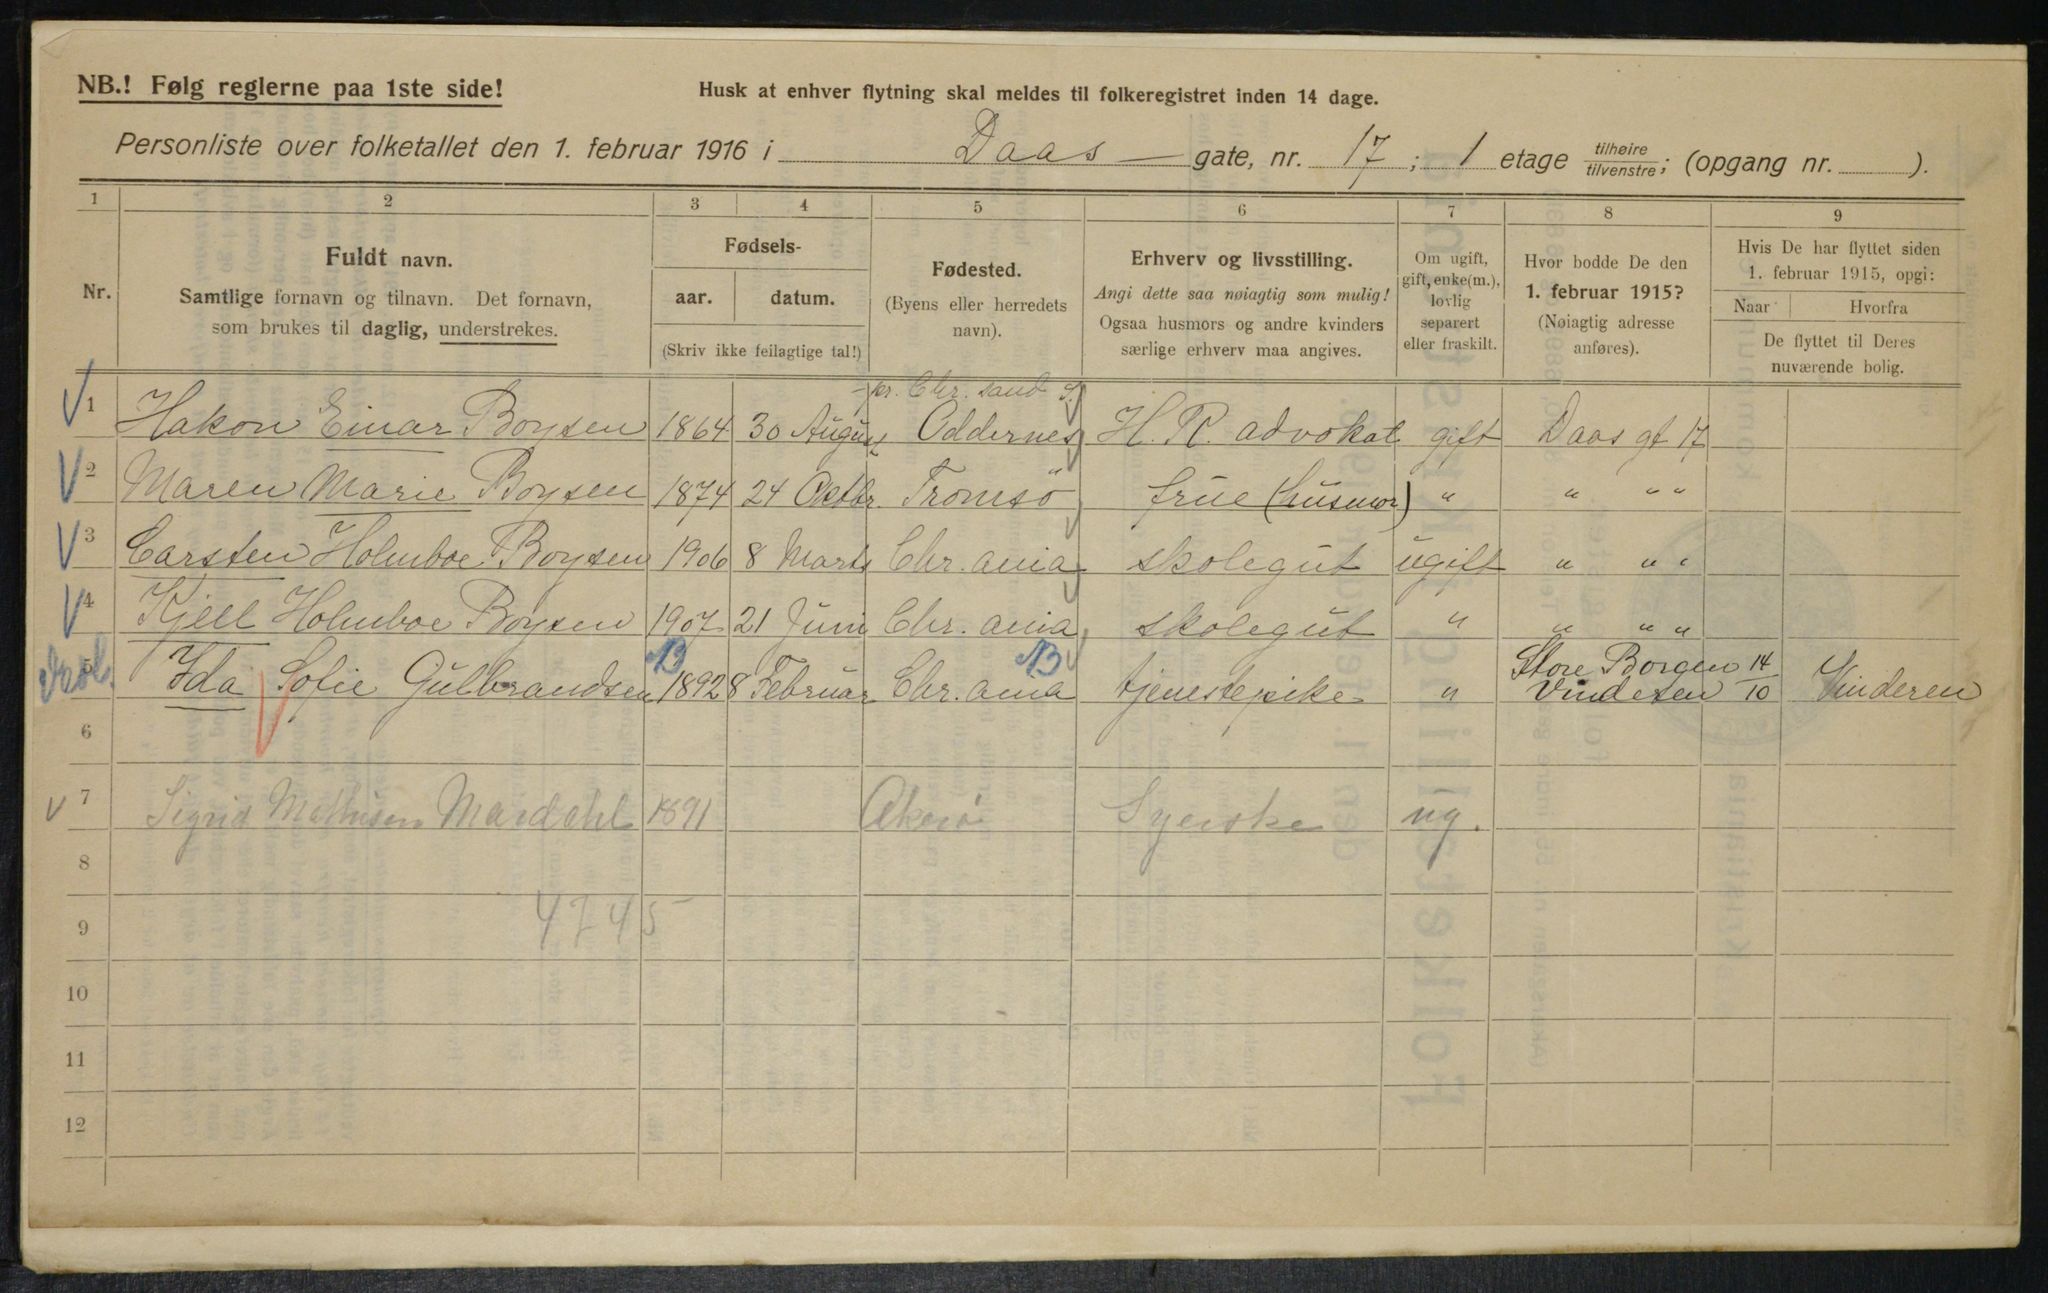 NB.! Følg reglerne paa 1ste side!
Husk at enhver flytning skal meldes til folkeregistret inden 14 dage.
Personliste over folketallet den 1. februar 1916 i Daas gate, nr. 17; 1 etage tilhøire tilvenstre; (opgang nr. ).
1 2 3 4 5 6 7 8 9
Nr.
Fuldt navn.
Samtlige fornavn og tilnavn. Det fornavn,
som brukes til daglig, understrekes.
Fødsels-
aar. datum.
(Skriv ikke feilagtige tal!)
Fødested.
(Byens eller herredets
navn).
Erhverv og livsstilling.
Angi dette saa nøiagtig som mulig!
Ogsaa husmors og andre kvinders
særlige erhverv maa angives.
Om ugift,
gift, enke(m.),
lovlig
separert
eller fraskilt.
Hvor bodde De den
1. februar 1915?
(Nøiagtig adresse
anføres).
Hvis De har flyttet siden
1. februar 1915, opgi:
Naar Hvorfra
De flyttet til Deres
nuværende bolig.
pr. Chr. sand S.
1 Hakon Einar Boysen 1864 30 August Oddernes H. R. advokat gift Daas gt 17
2 Maren Marie Boysen 1874 24 Oktbr. Tromsö frue (husmor) " " " "
3 Carsten Holmboe Boysen 1906 8 Marts Chr. ania skolegut ugift " " "
4 Kjell Holmboe Boysen 1907 21 Juni Chr. ania skolegut " " " "
B B Store Borgen 14
5 Ida Sofie Gulbrandsen 1892 8 Februar Chr. ania tjenestepike " Vinderen 10 Vinderen
6
7 Sigrid Mathisen Mardahl 1891 Akerö Syerske ug.
8
4745
9
10
11
12